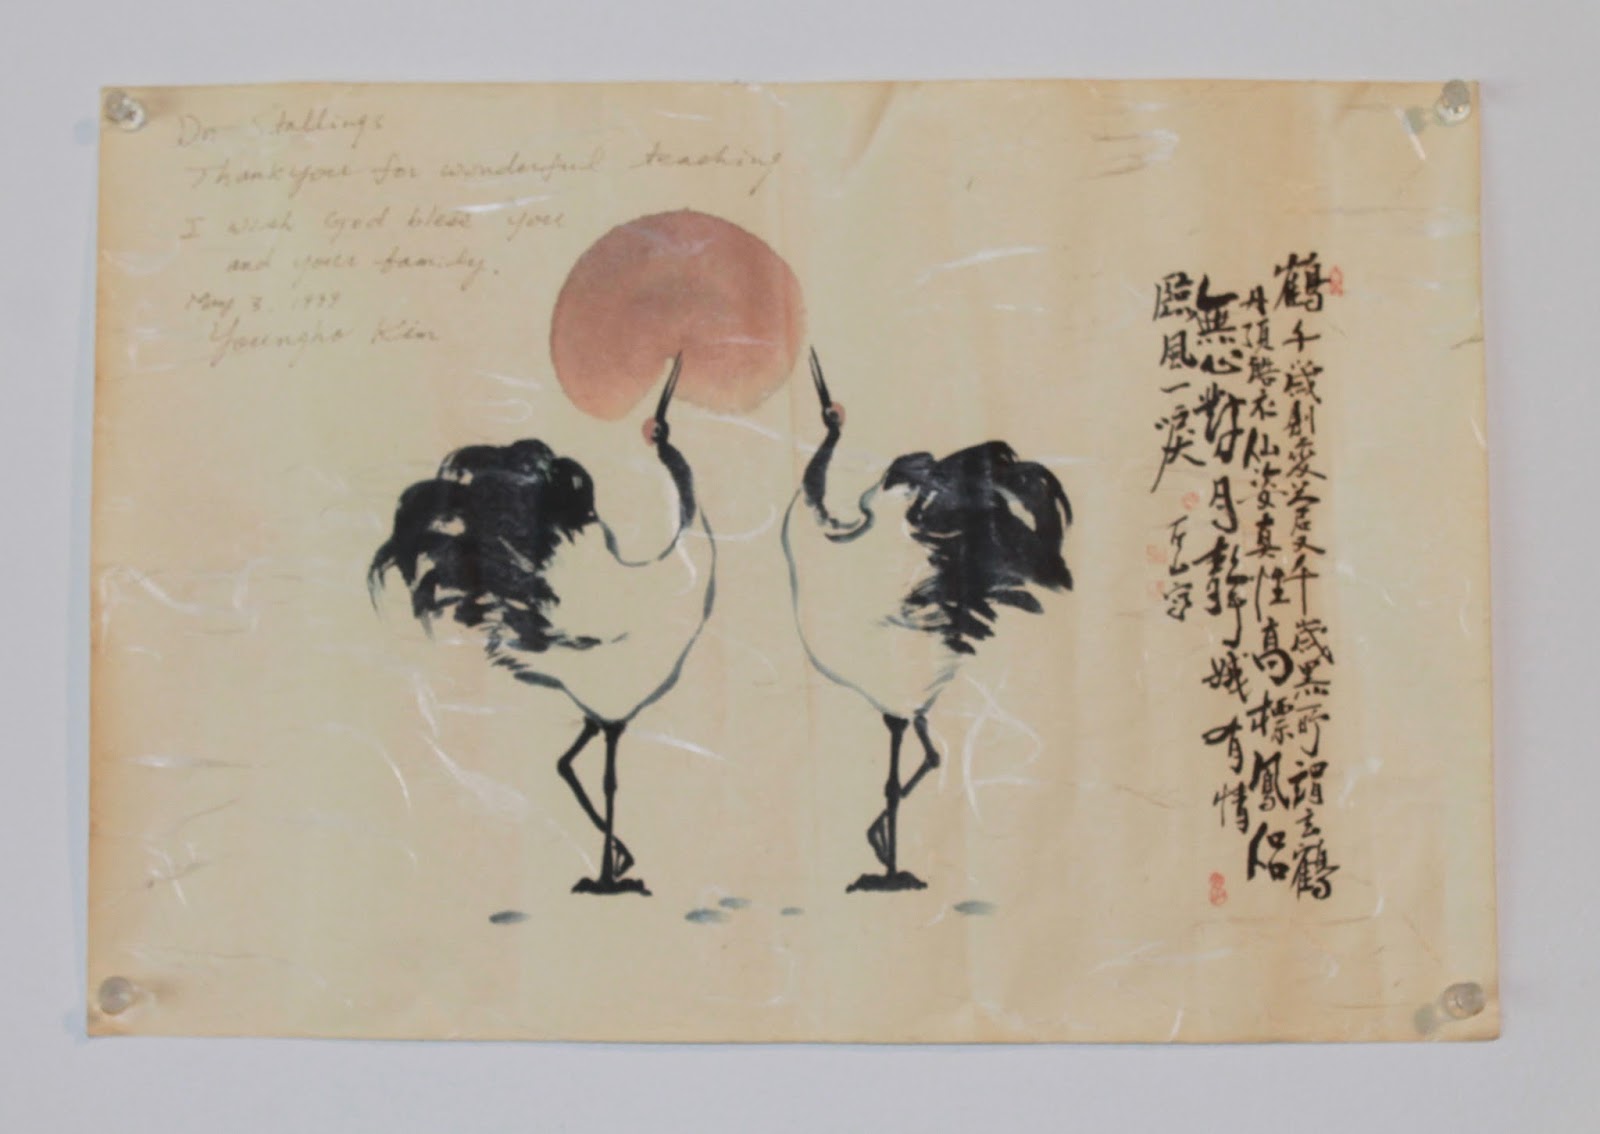 Dr. Stallings
Thank you for wonderful teaching
I wish God bless you
and your family.
May 3, 1999
Youngho Kim
鶴千歲則變蒼又千歲黑所謂玄鶴
丹頂皓衣仙姿真性高標鳳侶
無心對月靜娥有情
臨風一唳